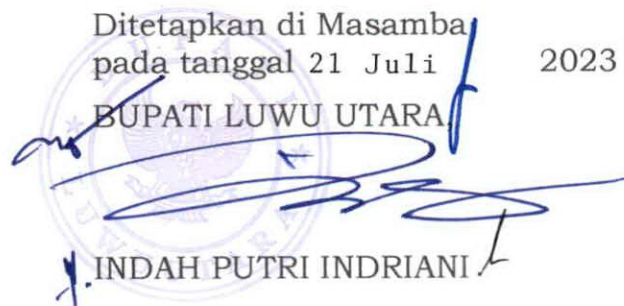 Ditetapkan di Masamba
pada tanggal 21 Juli 2023
BUPATI LUWU UTARA,
BUPATI
LUWU UTARA
INDAH PUTRI INDRIANI